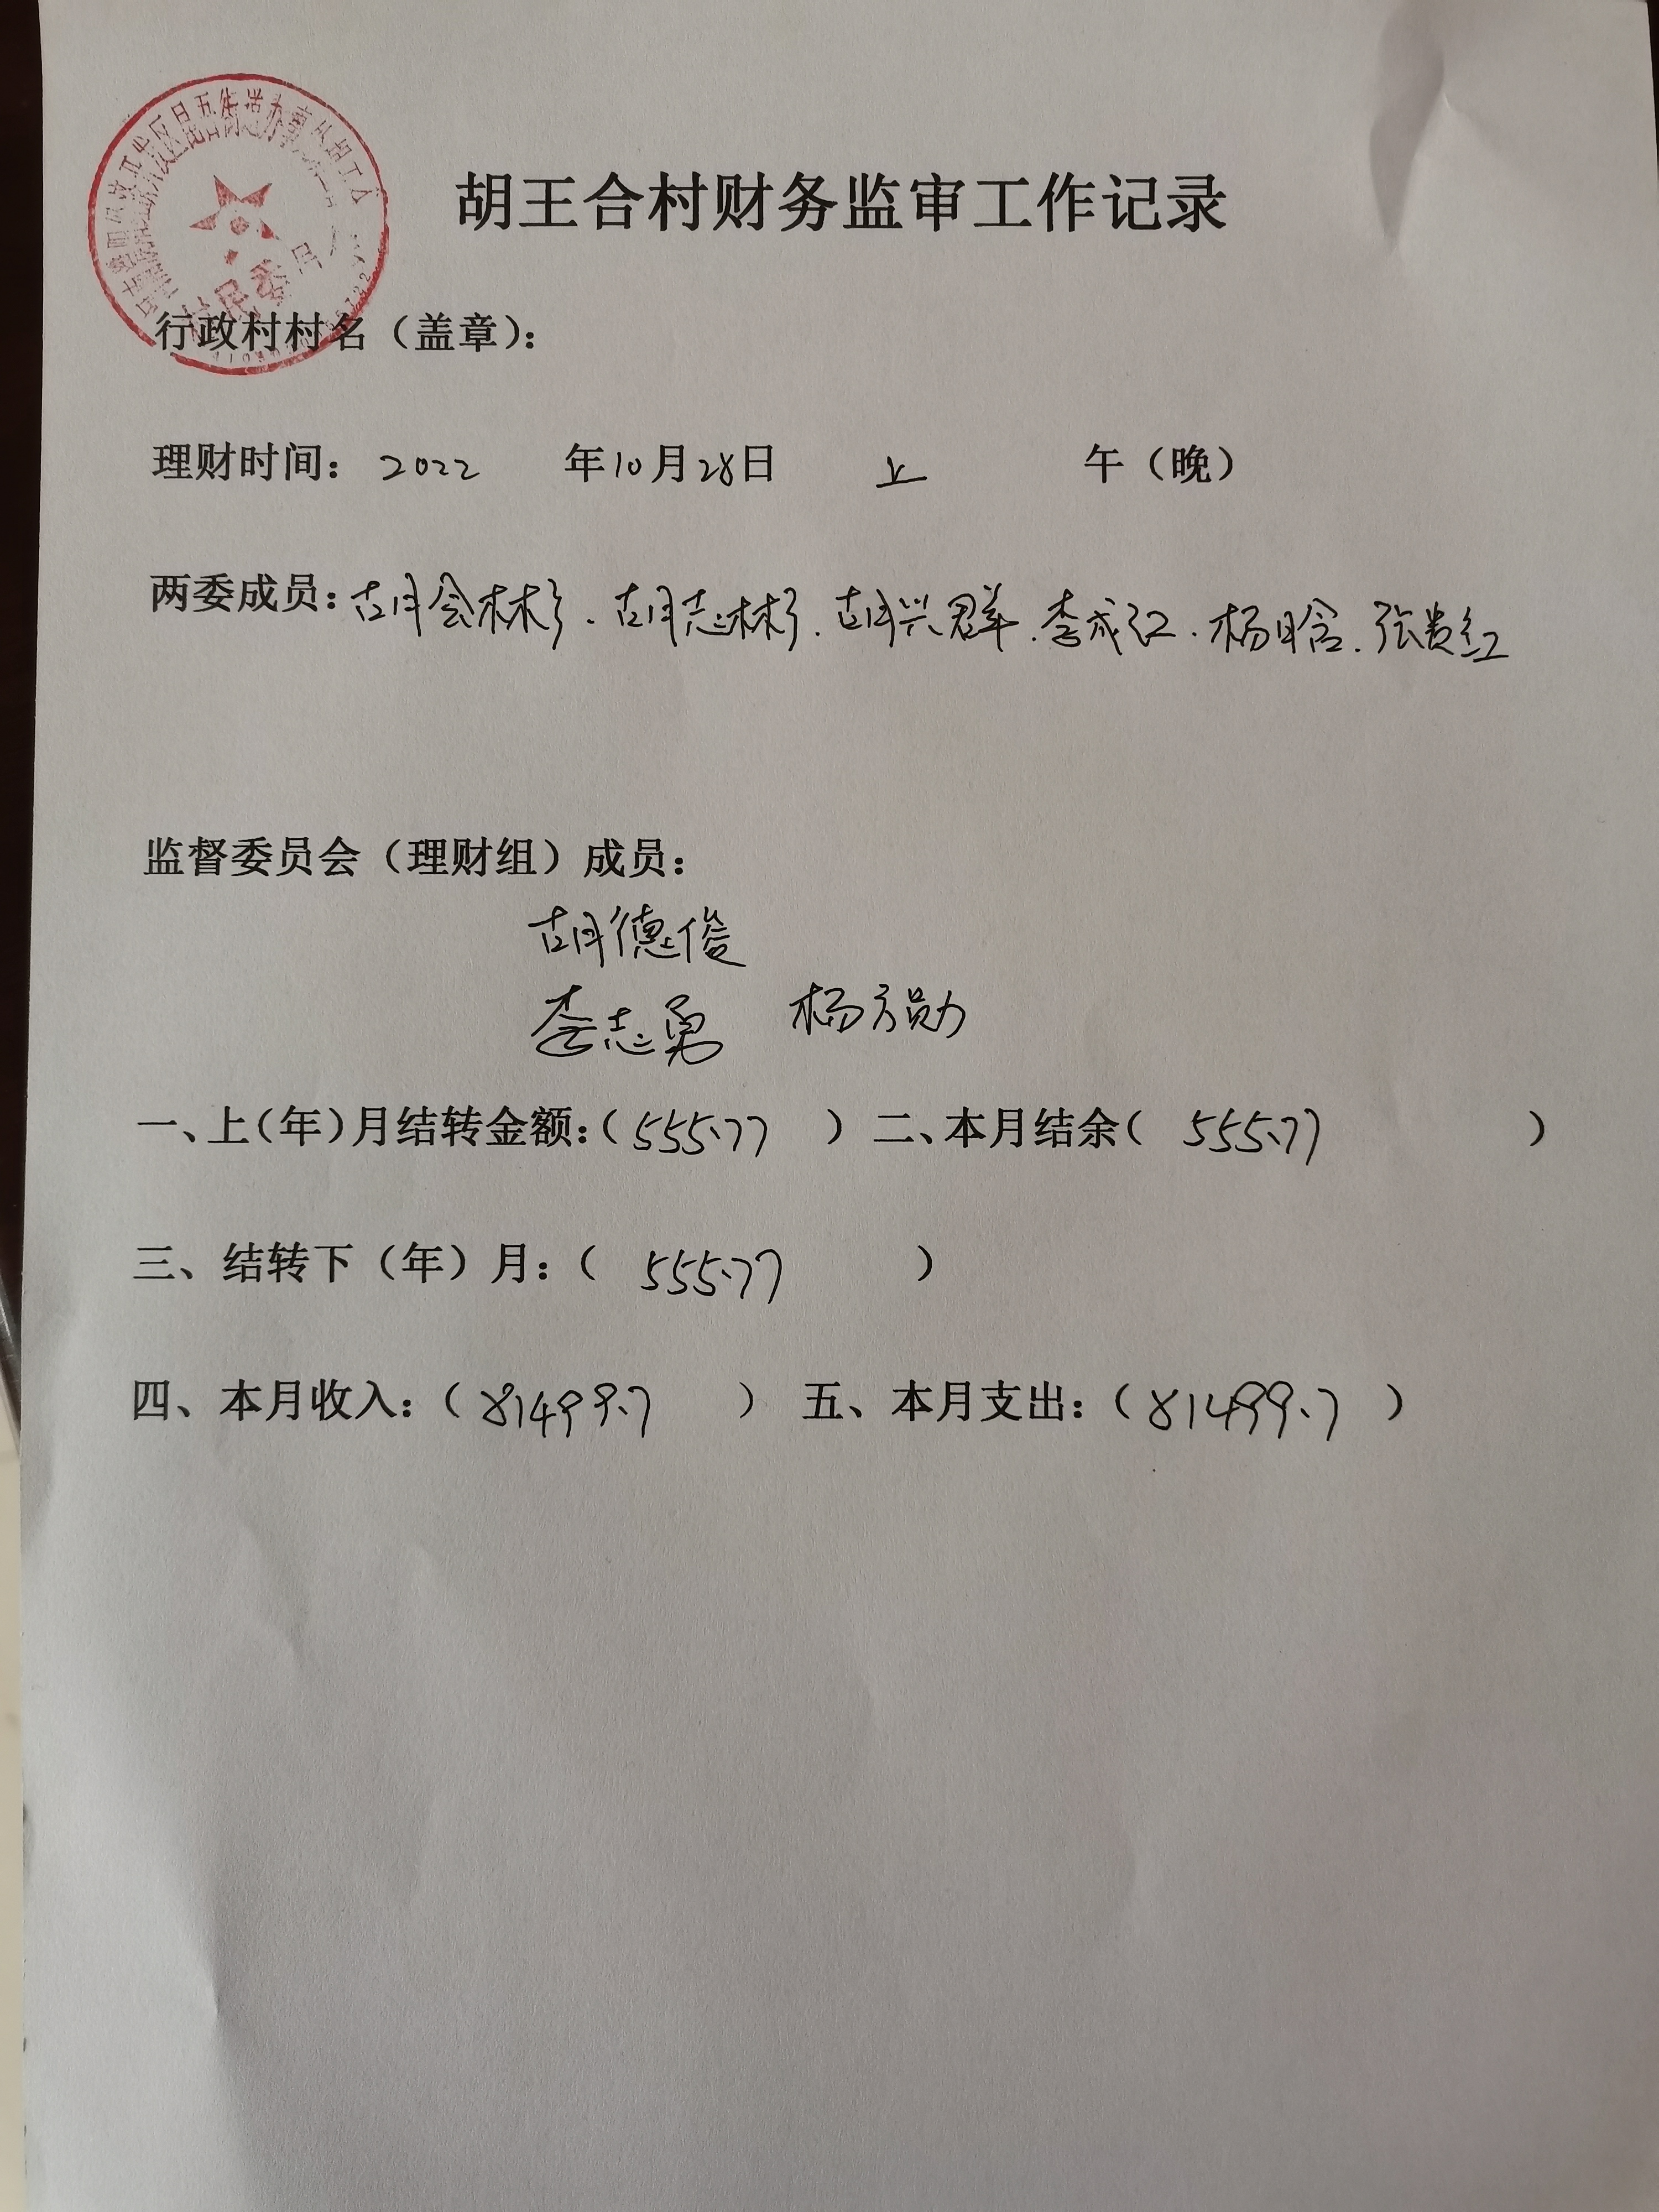 胡王合村财务监审工作记录
村民委员
行政村村名（盖章）：
理财时间：2022 年10月28日 上 午（晚）
两委成员：胡会彬.胡志彬.胡兴群.李成江.杨晗.张贵红
监督委员会（理财组）成员：
胡德俊
李志勇 杨方勋
一、上（年）月结转金额：（555.77 ） 二、本月结余（ 555.77 ）
三、结转下（年）月：（ 555.77 ）
四、本月收入：（81499.7 ） 五、本月支出：（81499.7 ）